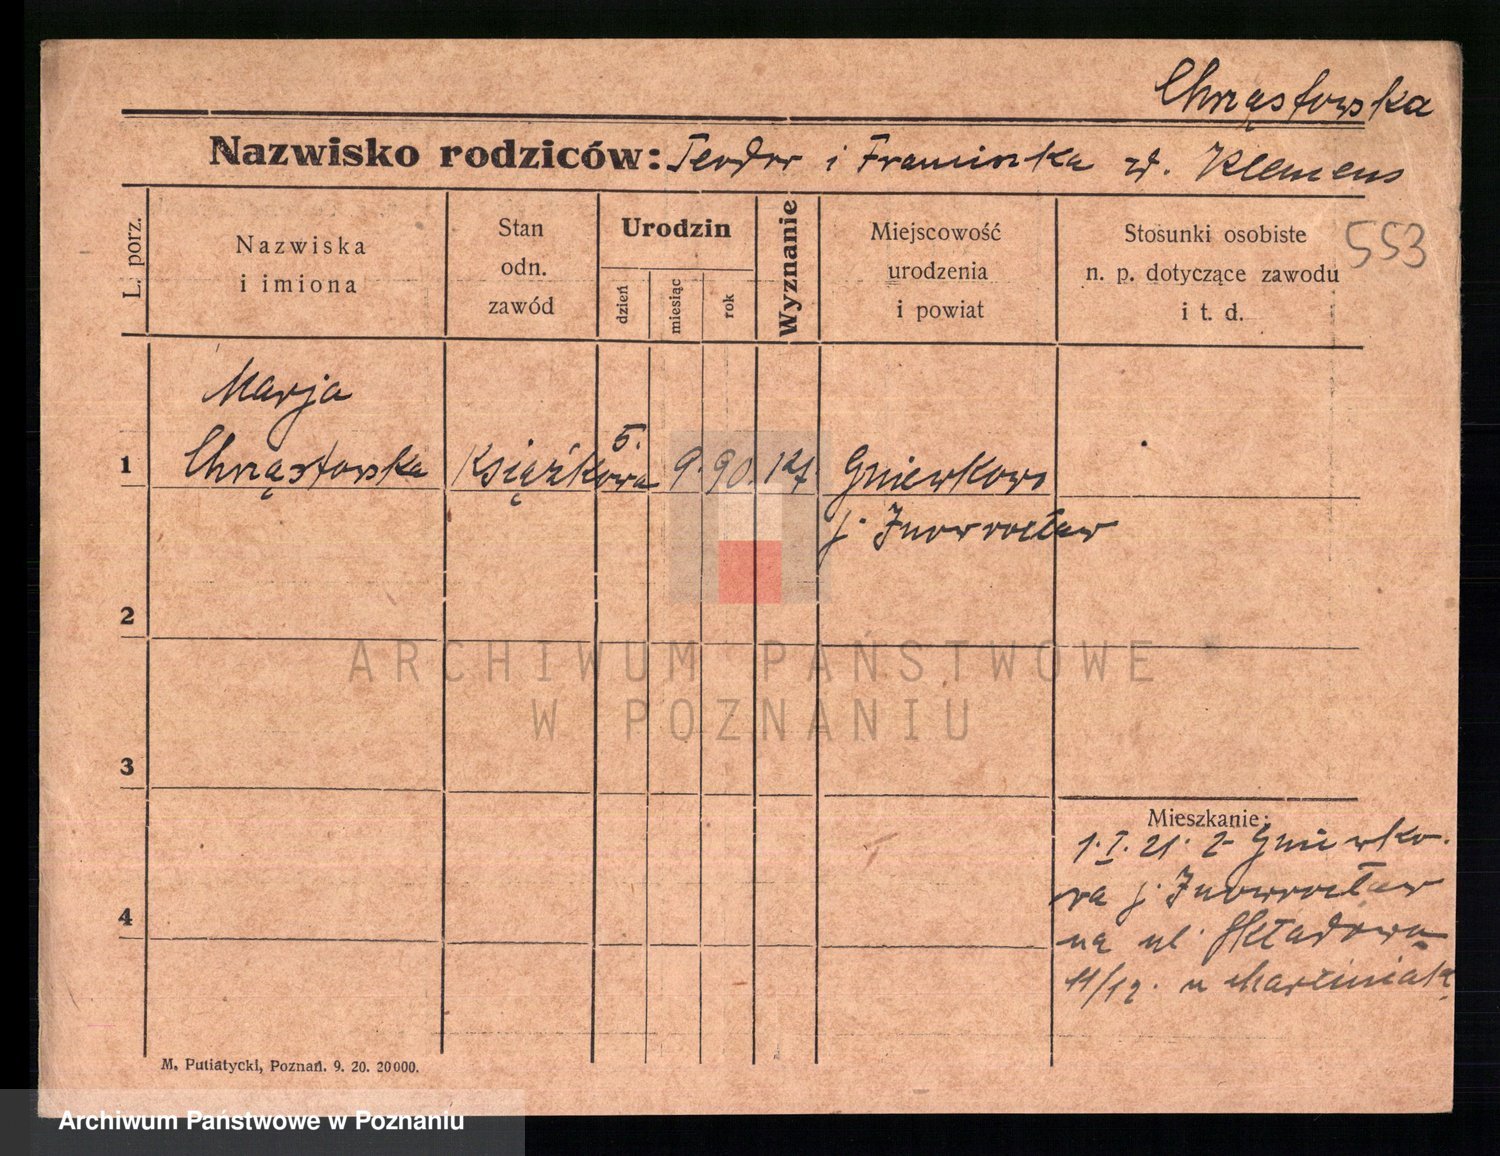 Chrząstowska
Nazwisko rodziców: Teodor i Franciszka zd. Klemens
L. porz.
Nazwiska
i imiona
Stan
odn.
zawód
Urodzin
dzień
miesiąc
rok
Wyznanie
Miejscowość
urodzenia
i powiat
Stosunki osobiste
n. p. dotyczące zawodu
i t. d.
553
1
Marja
Chrząstowska
Książkowa
5.
9.
90.
Gniewkowo
p. Inowrocław
2
3
4
Mieszkanie:
1.I.21. z Gniewko-
wa p. Inowrocław
na ul. Składową
11/12. u Marciniak
M. Putiatycki, Poznań. 9. 20. 20000.
ARCHIWUM PAŃSTWOWE
W POZNANIU
Archiwum Państwowe w Poznaniu